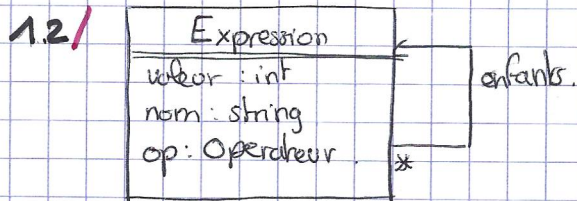 1.2/
Expression
valeur : int
nom : string
op : Operateur
enfants.
*